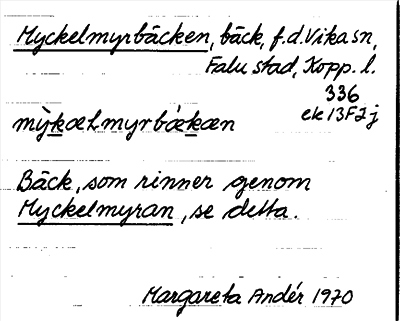 Myckelmyrbäcken, bäck, f.d. Vika sn,
Falu stad, Kopp. l.
336
ek 13F2j
mỳkæLmyrbækæn
Bäck, som rinner genom
Myckelmyran, se detta.
Margareta Andér 1970